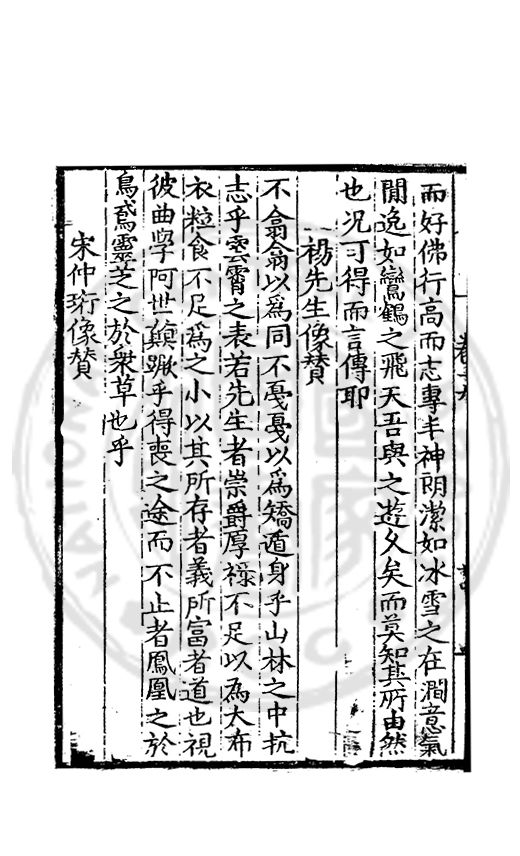 而好佛行高而志專丰神朗潔如冰雪之在澗意氣
閒逸如鸞鶴之飛天吾與之遊久矣而莫知其所由然
也况可得而言傳耶
楊先生像贊
不翕翕以爲同不戞戞以爲矯遁身乎山林之中抗
志乎雲霄之表若先生者崇爵厚祿不足以為大布
衣粒食不足爲之小以其所存者義所富者道也視
彼曲學阿世顛蹶乎得喪之途而不止者鳳凰之於
鳥鳶靈芝之於衆草也乎
宋仲珩像贊